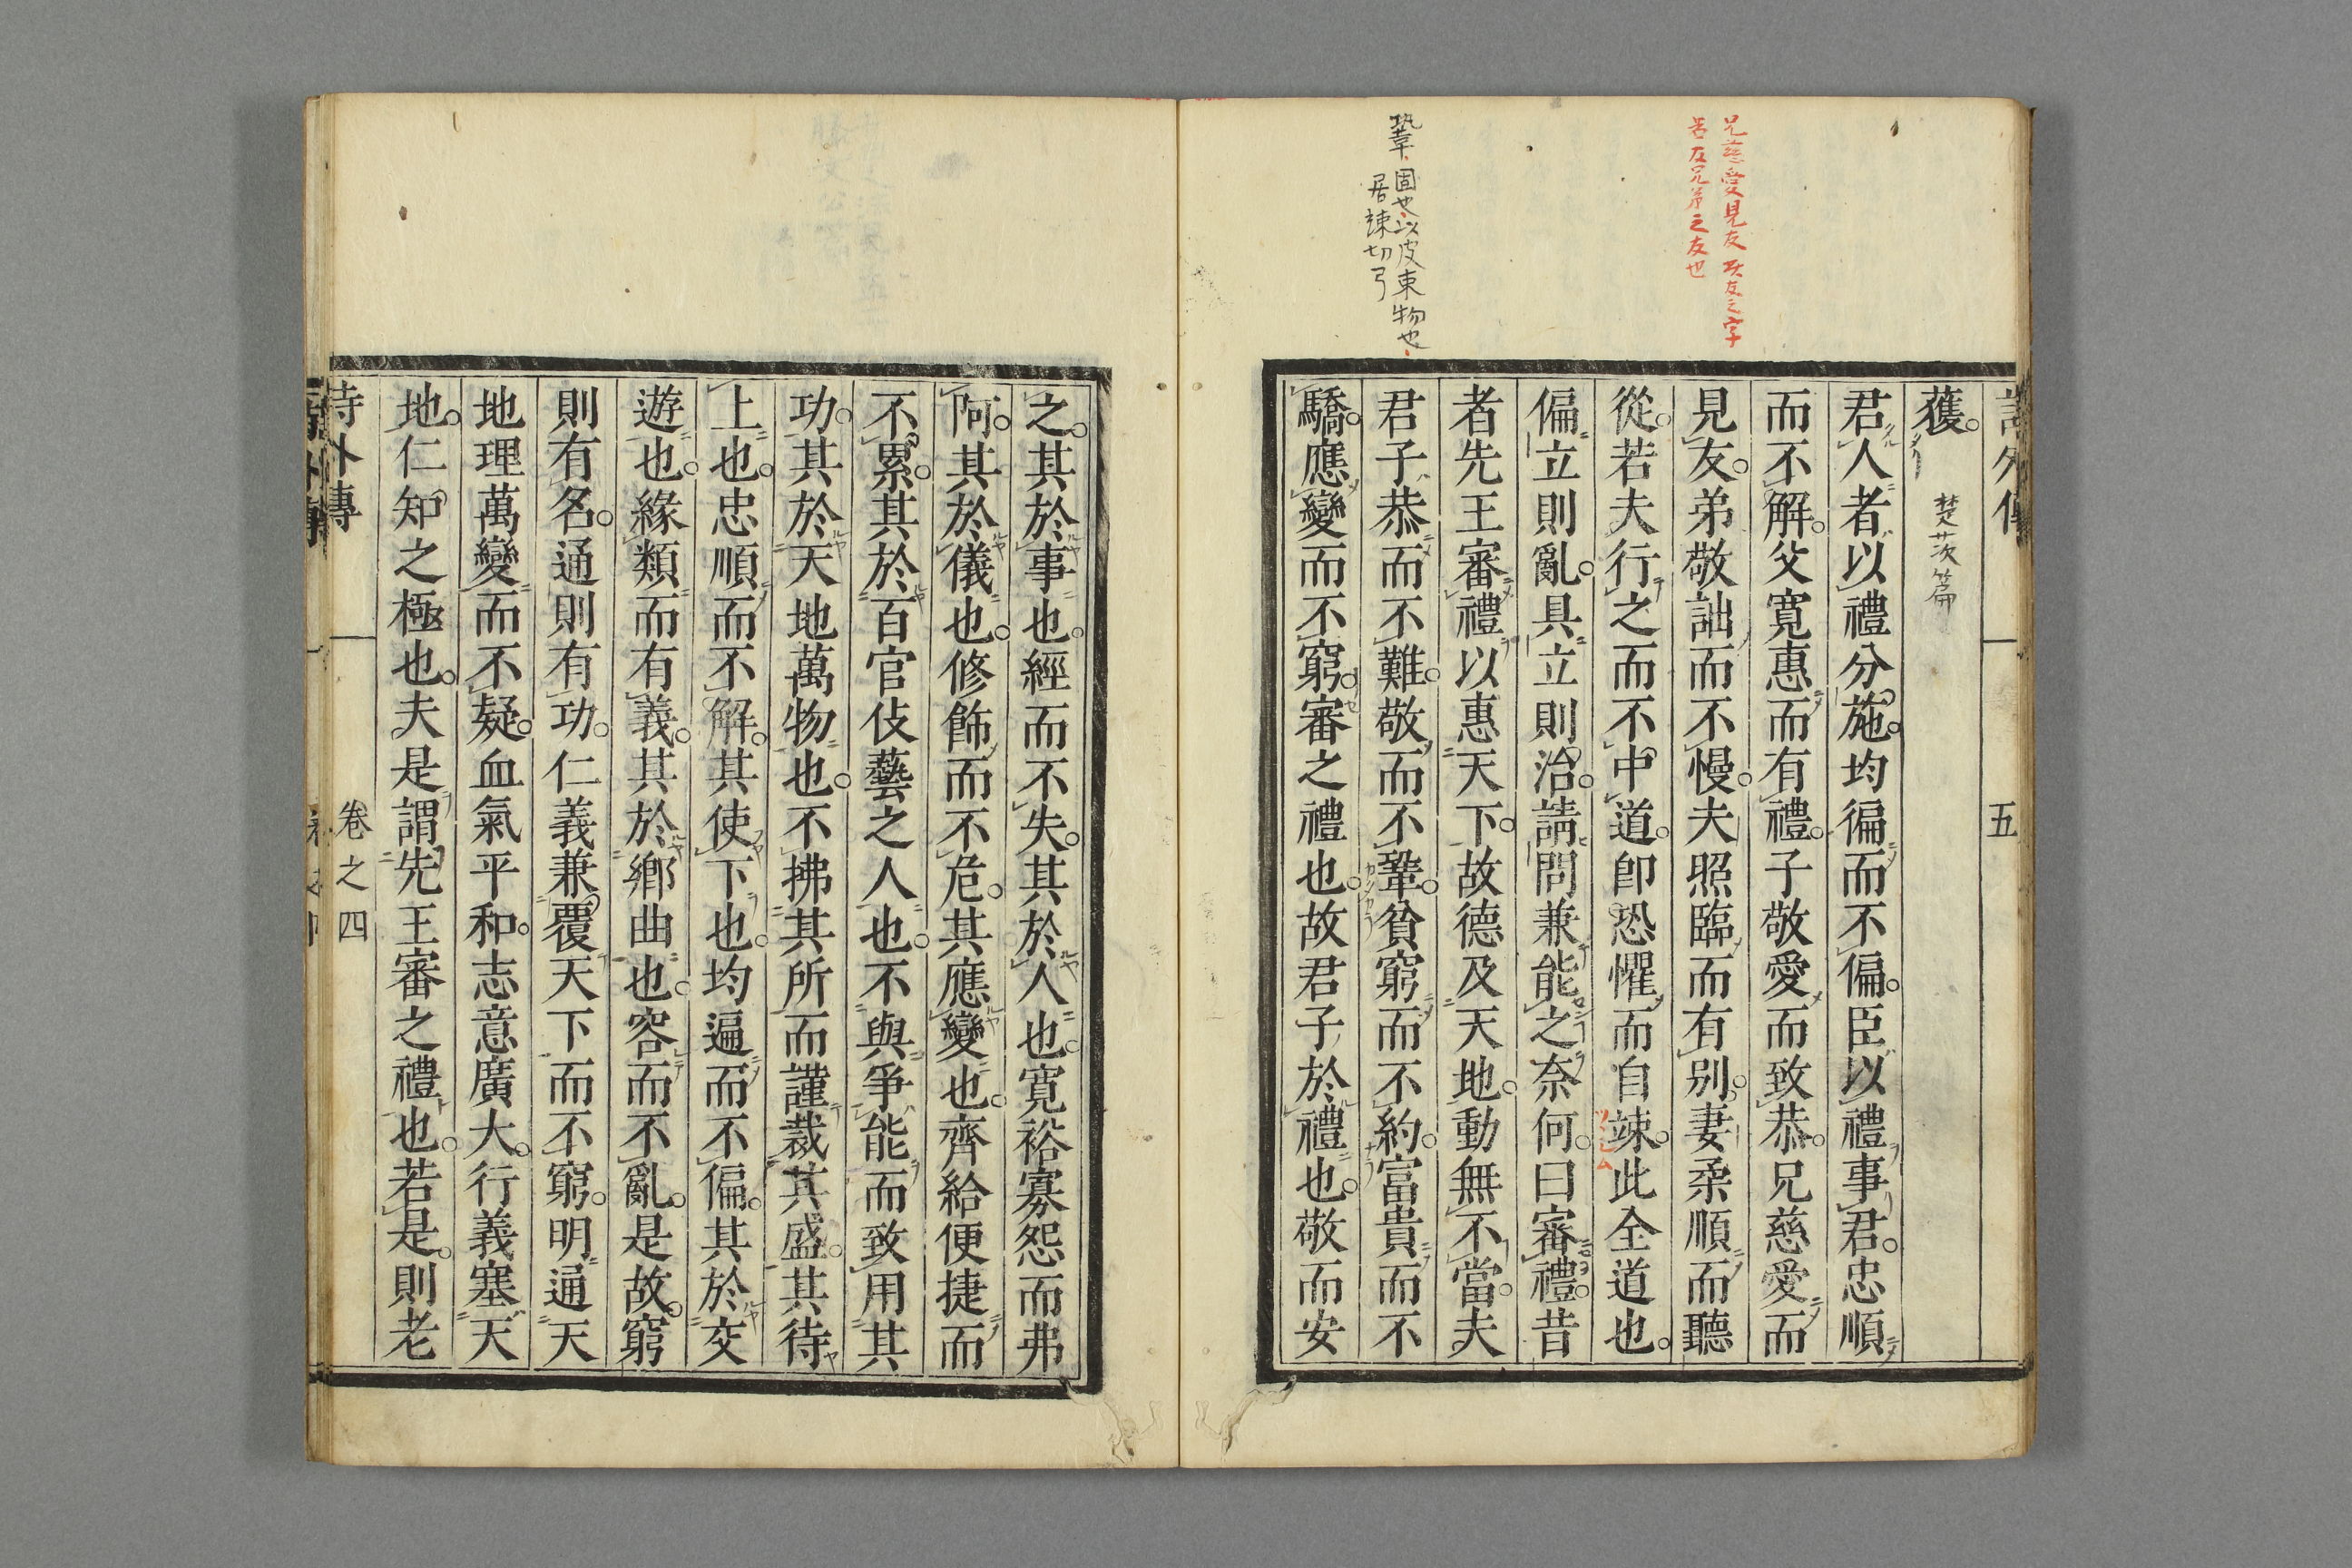 兄慈愛見友 友之字
友兄弟之友也
鞏 固也以皮束物也
居竦切弓
詩外傳
五
獲
楚茨篇
君人者以禮分施均徧而不偏臣以禮事君忠順
而不解父寬惠而有禮子敬愛而致恭兄慈愛而
見友弟敬詘而不慢夫照臨而有別妻柔順而聽
從若夫行之而不中道卽恐懼而自竦此全道也
偏立則亂具立則治請問兼能之奈何曰審禮昔
者先王審禮以惠天下故德及天地動無不當夫
君子恭而不難敬而不鞏貧窮而不約富貴而不
驕應變而不窮審之禮也故君子於禮也敬而安
之其於事也經而不失其於人也寬裕寡怨而弗
阿其於儀也修飾而不危其應變也齊給便捷而
不累其於百官伎藝之人也不與爭能而致用其
功其於天地萬物也不拂其所而謹裁其盛其待
上也忠順而不解其使下也均遍而不偏其於交
遊也緣類而有義其於鄉曲也容而不亂是故窮
則有名通則有功仁義兼覆天下而不窮明通天
地理萬變而不疑血氣平和志意廣大行義塞天
地仁知之極也夫是謂先王審之禮也若是則老
詩外傳
卷之四